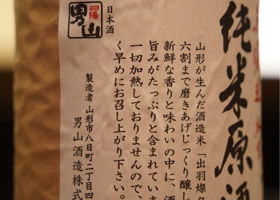 純米原酒
山形が生んだ酒造米「出羽燦
六割まで磨きあげじっくり醸し
新鮮な香りと味わいの中に、酒
旨みがたっぷりと含まれていま
一切加熱しておりませんので、
く早めにお召し上がり下さい。
製造者 山形市八日町二丁目四
男山酒造株式
日本酒
男山